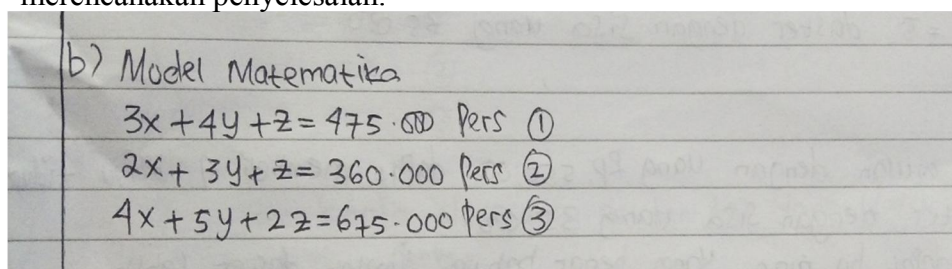 merencanakan penyelesaian.
b) Model Matematika
3x + 4y + z = 475.000 Pers ①
2x + 3y + z = 360.000 Pers ②
4x + 5y + 2z = 675.000 Pers ③